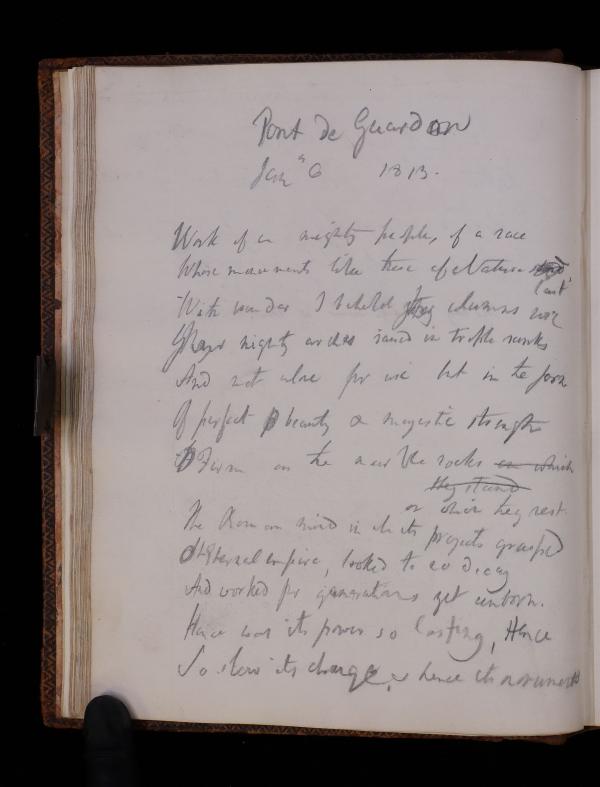 Pont de Guardon
Jan 6 1813.
Work of a mighty people, of a race
Whose monuments like those of Nature
last
With wonder I beheld thy columns rise
Thy mighty arches raised in triple ranks
And not alone for use but in the form
Of perfect beauty & majestic strength
Firm on the marble rocks on which
they stand
on which they rest.
The Roman mind in all its projects grasped
Eternal empire, looked to no decay
And worked for generations yet unborn.
Hence was its power so lasting, Hence
So slow its change, & hence its monuments